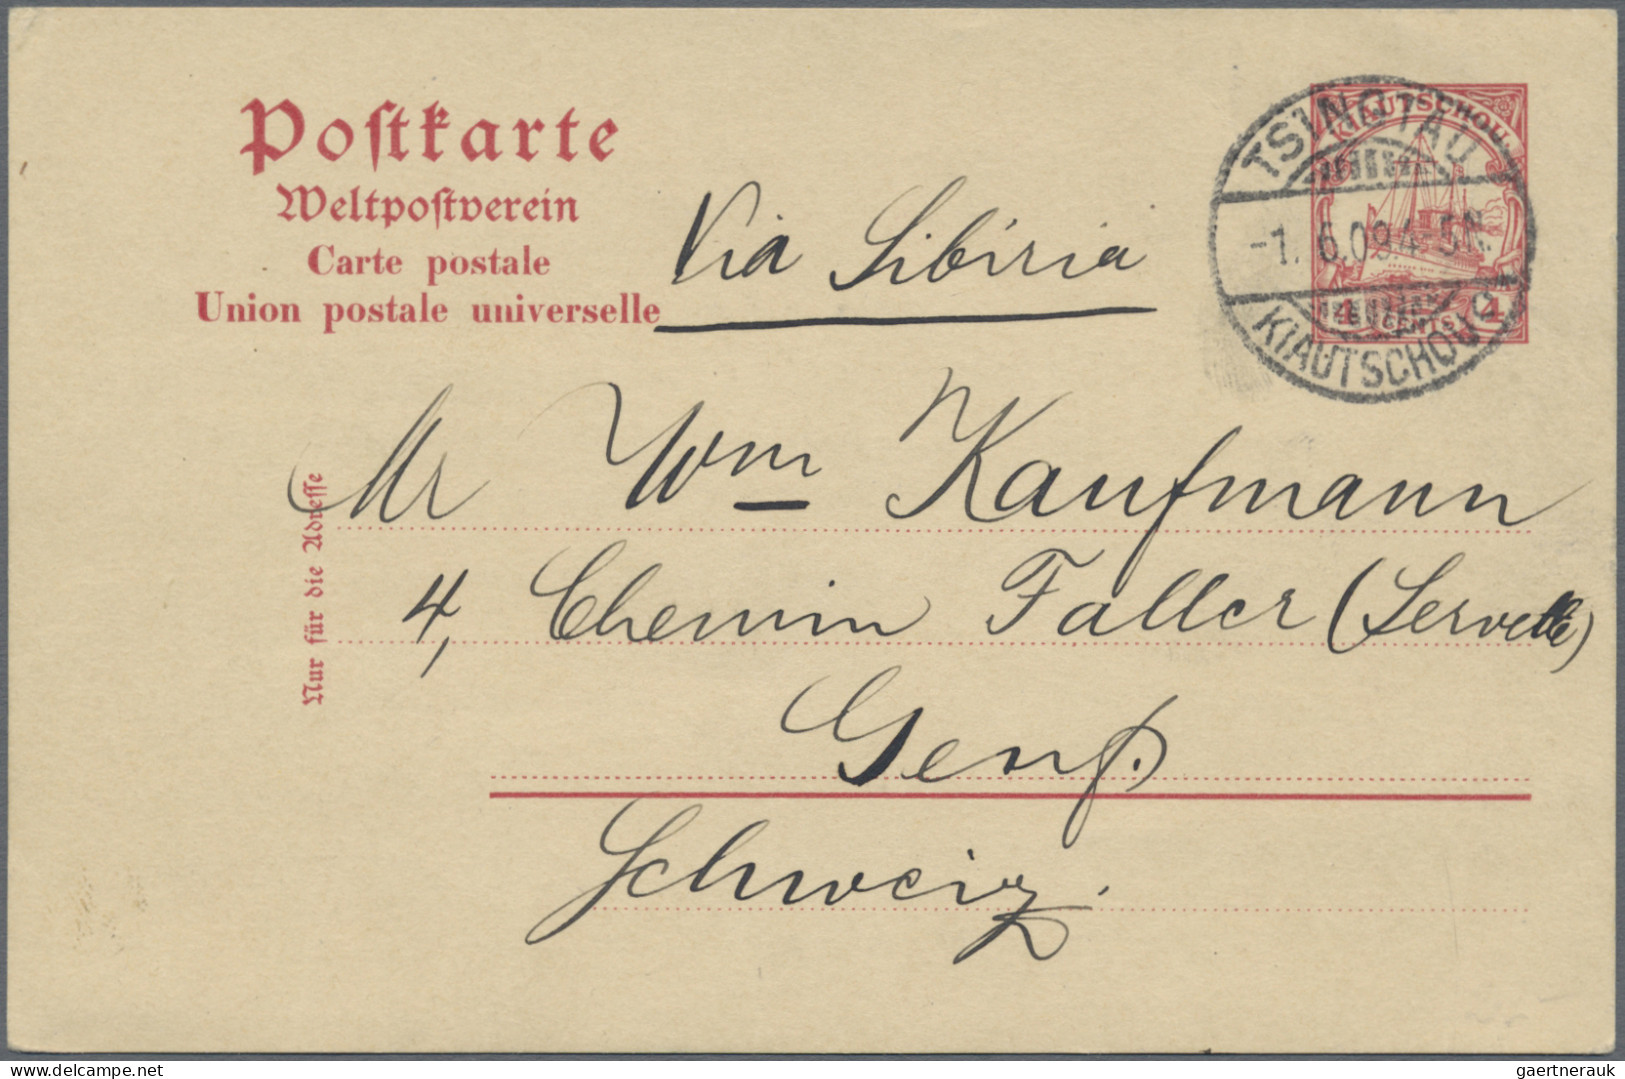 Postkarte
Weltpostverein
Carte postale
Union postale universelle
Via Sibiria
KIAUTSCHOU
4 CENTS 4
TSINGTAU
-1. 6.09. 4-5N.
KIAUTSCHOU
Mr Wm Kaufmann
Nur für die Adresse
4, Chemin Faller (Servette)
Genf.
Schweiz.
gaertnerauk